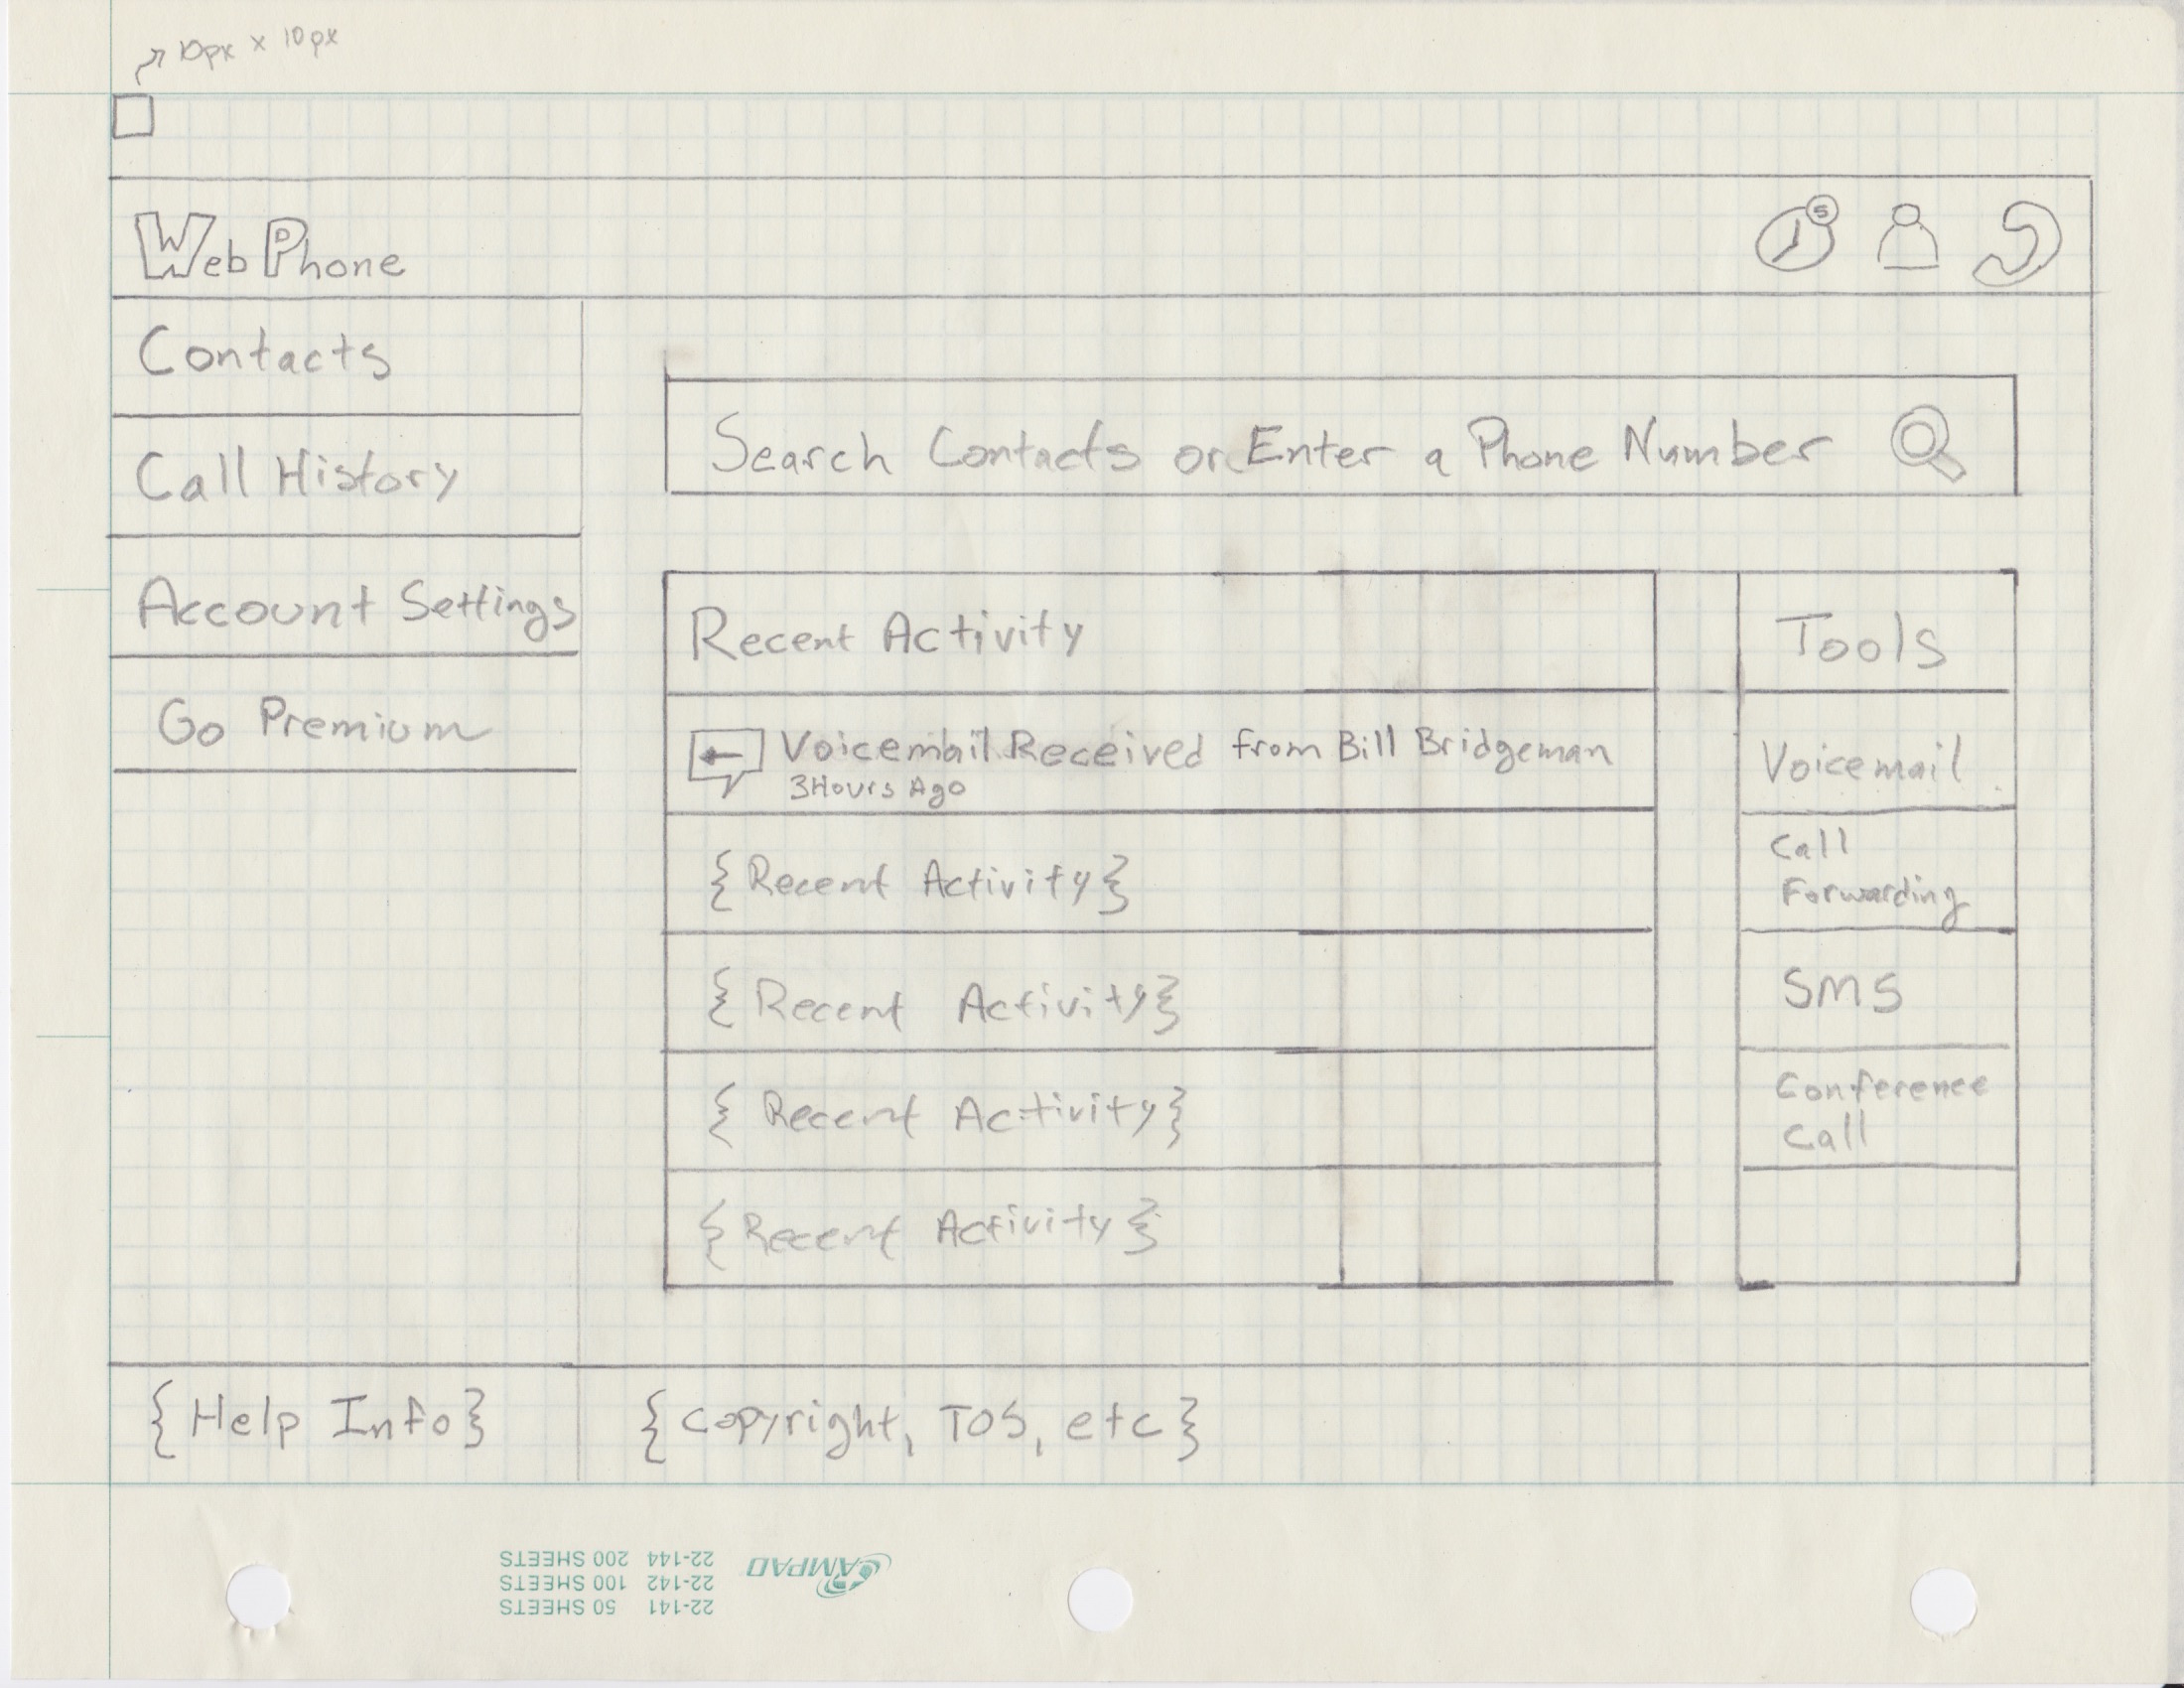 10px x 10px
WebPhone
5
Contacts
Call History
Account Settings
Go Premium
Search Contacts or Enter a Phone Number
Recent Activity
Voicemail Received from Bill Bridgeman
3 Hours Ago
{Recent Activity}
{Recent Activity}
{Recent Activity}
{Recent Activity}
Tools
Voicemail
Call
Forwarding
SMS
Conference
Call
{Help Info}
{Copyright, TOS, etc}
22-141 50 SHEETS
22-142 100 SHEETS
22-144 200 SHEETS
CAMPAD